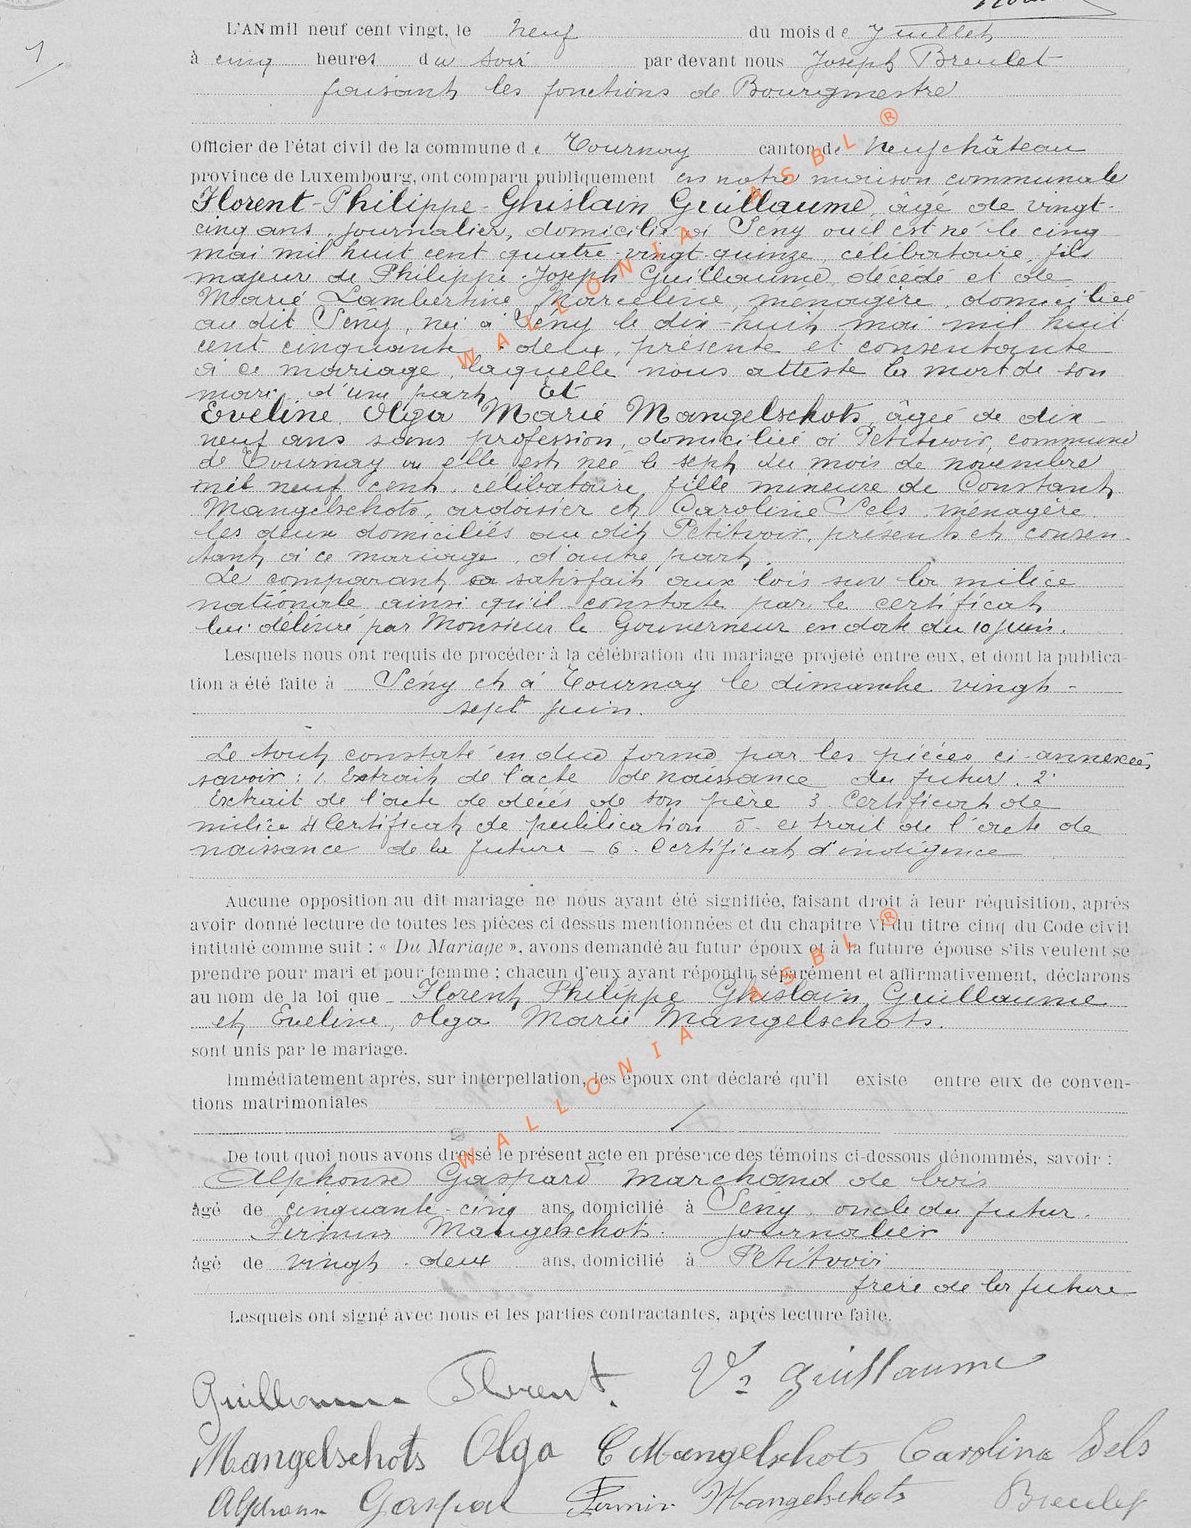 1
L'AN mil neuf cent vingt, le neuf du mois de Juillet
à cinq heures du soir par devant nous Joseph Breulet
faisant les fonctions de Bourgmestre
Officier de l'état civil de la commune de Tournay canton de Neufchâteau
province de Luxembourg, ont comparu publiquement en notre maison communale
Florent-Philippe-Ghislain Guillaume, âgé de vingt-
cinq ans, journalier, domicilié à Sény où il est né le cinq
mai mil huit cent quatre-vingt-quinze, célibataire, fils
majeur de Philippe-Joseph Guillaume, décédé et de
Marie Lambertine Marceline, ménagère, domiciliée
au dit Sény, née à Sény le dix-huit mai mil huit
cent cinquante-deux, présente et consentante
à ce mariage, laquelle nous atteste la mort de son
mari, d'une part, Et
Eveline Olga Marie Mangelschots, âgée de dix-
neuf ans sans profession, domiciliée à Petitvoir, commune
de Tournay où elle est née le sept du mois de novembre
mil neuf cent, célibataire, fille mineure de Constant
Mangelschots, ardoisier et Caroline Sels ménagère
les deux domiciliés au dit Petitvoir, présents et consen-
tant à ce mariage, d'autre part.
Le comparant a satisfait aux lois sur la milice
nationale ainsi qu'il constate par le certificat
lui délivré par Monsieur le Gouverneur en date du 10 juin.
Lesquels nous ont requis de procéder à la célébration du mariage projeté entre eux, et dont la publica-
tion a été faite à Sény et à Tournay le dimanche vingt-
sept juin.
Le tout constaté en due forme par les pièces ci-annexées,
savoir : 1. Extrait de l'acte de naissance du futur. 2.
Extrait de l'acte de décès de son père 3. Certificat de
milice 4 Certificat de publication 5. extrait de l'acte de
naissance de la future - 6. Certificat d'indigence
Aucune opposition au dit mariage ne nous ayant été signifiée, faisant droit à leur réquisition, après
avoir donné lecture de toutes les pièces ci dessus mentionnées et du chapitre VI du titre cinq du Code civil
intitulé comme suit : « Du Mariage », avons demandé au futur époux et à la future épouse s'ils veulent se
prendre pour mari et pour femme ; chacun d'eux ayant répondu séparément et affirmativement, déclarons
au nom de la loi que Florent Philippe Ghislain Guillaume
et Eveline, Olga Marie Mangelschots.
sont unis par le mariage.
Immédiatement après, sur interpellation, les époux ont déclaré qu'il existe entre eux de conven-
tions matrimoniales
De tout quoi nous avons dressé le présent acte en présence des témoins ci-dessous dénommés, savoir :
Alphonse Gaspard marchand de bois
âgé de cinquante-cinq ans, domicilié à Sény oncle du futur.
Firmin Mangelschots. journalier
âgé de vingt-deux ans, domicilié à Petitvoir
frère de la future
Lesquels ont signé avec nous et les parties contractantes, après lecture faite.
Guillaume Florent. Ve Guillaume
Mangelschots Olga C Mangelschots Carolina Sels
Alphonse Gaspar Firmin Mangelschots Breulet
WALLONIA ASBL ®
WALLONIA ASBL ®